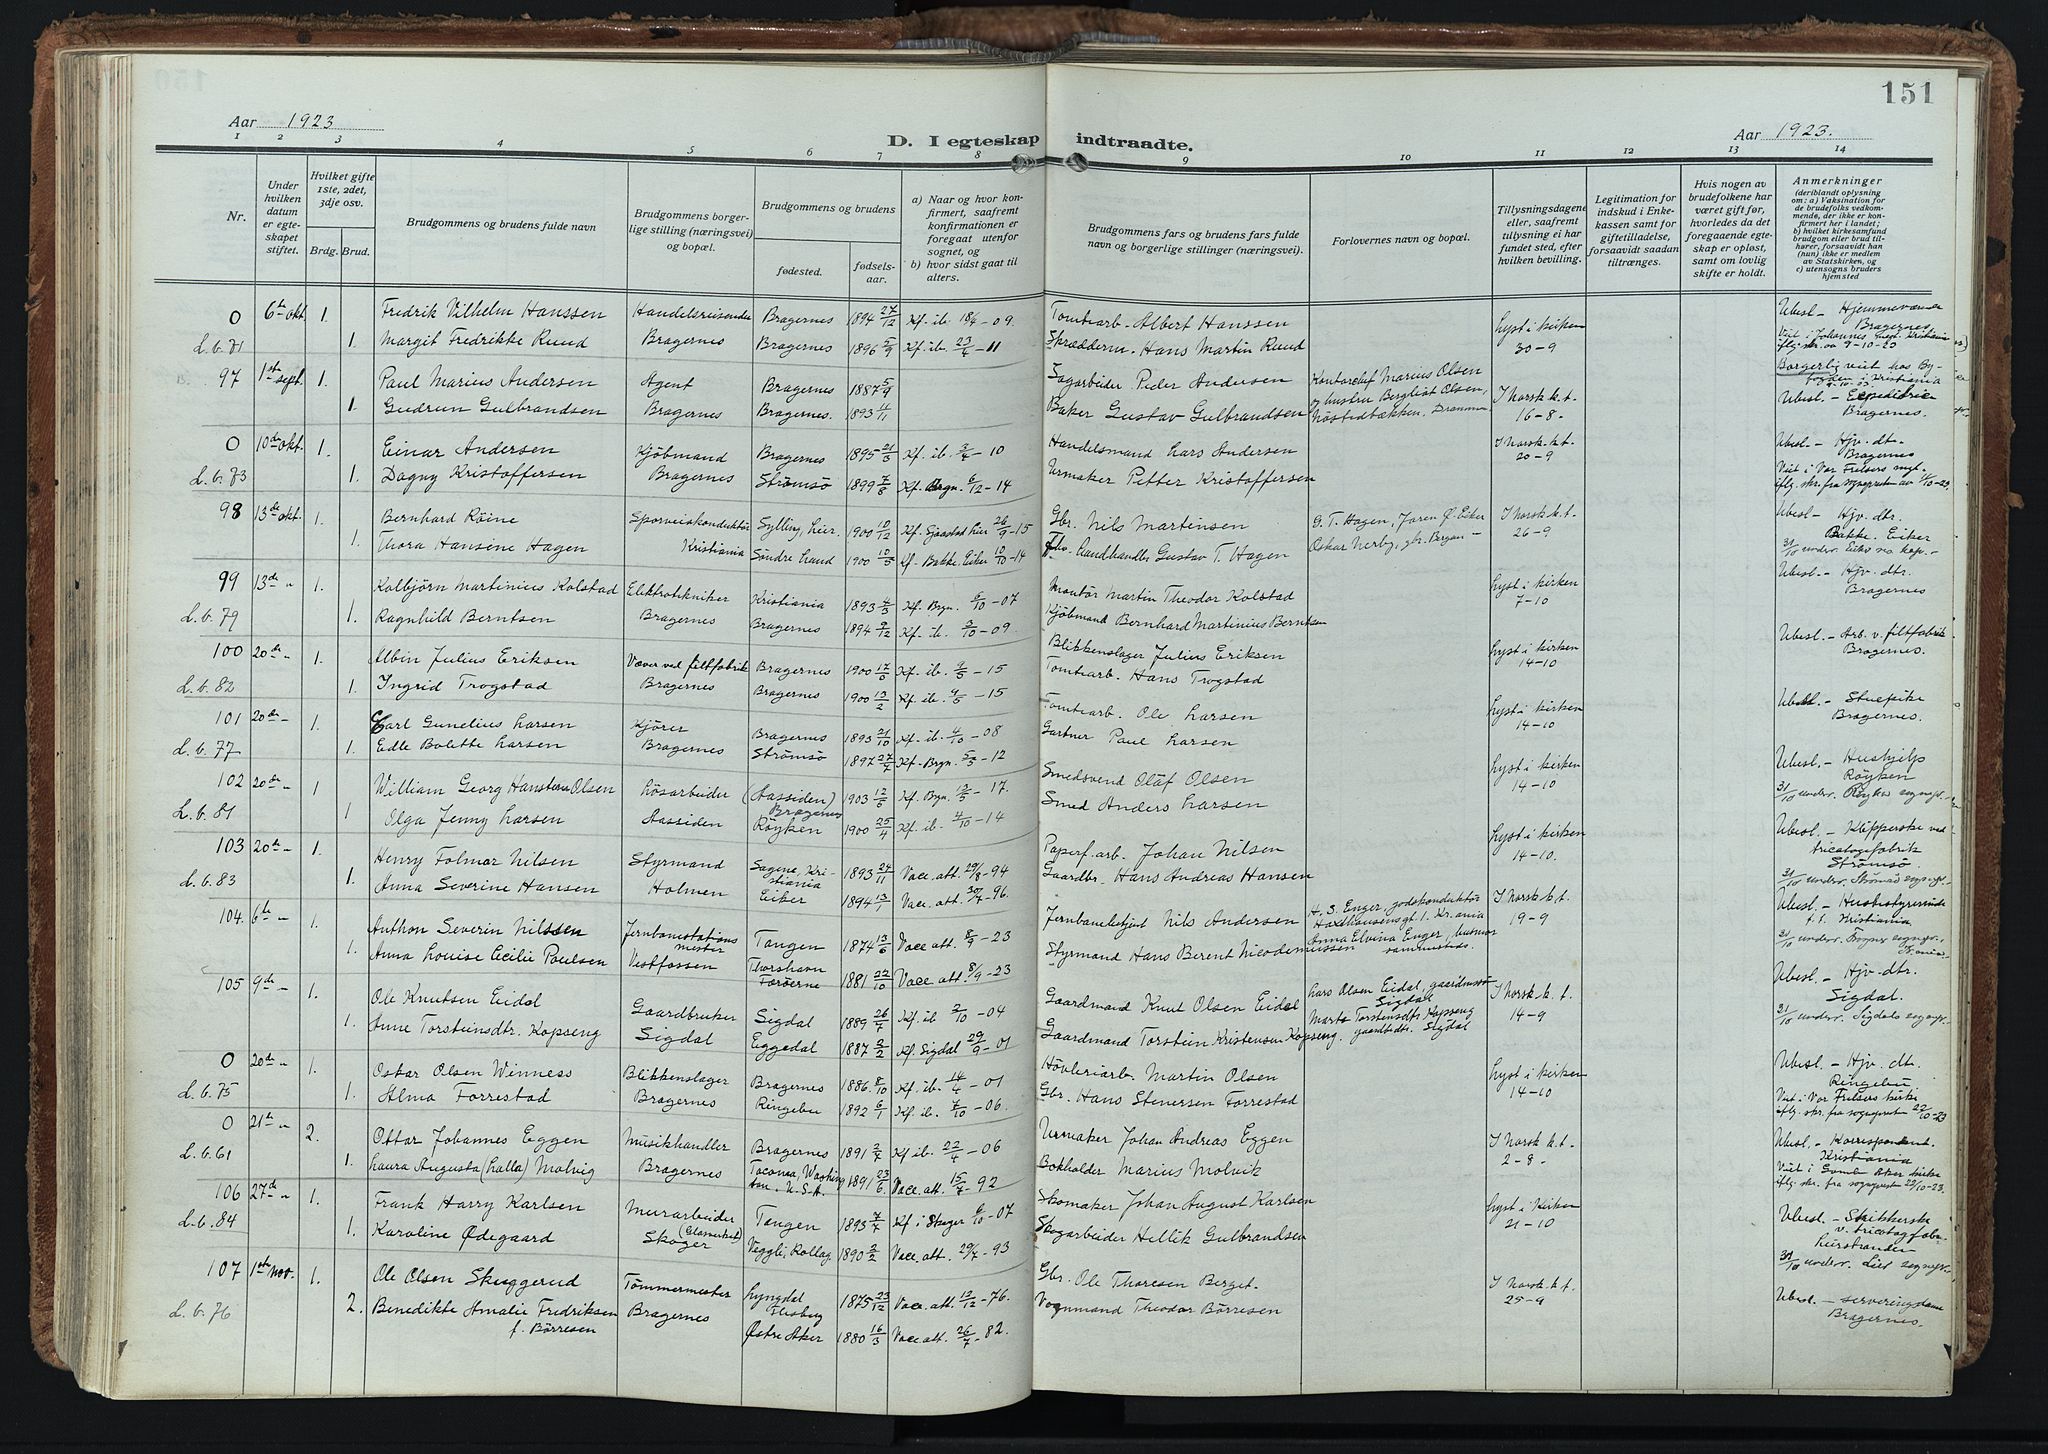 151
Aar 1923
D. I egteskap indtraadte.
Aar 1923.
1 2 3 4 5 6 7 8 9 10 11 12 13 14
Nr.
Under hvilken datum er egteskapet stiftet.
Hvilket gifte 1ste, 2det, 3dje osv.
Brdg. Brud.
Brudgommens og brudens fulde navn
Brudgommens borgerlige stilling (næringsvei) og bopæl.
Brudgommens og brudens
fødested. fødselsaar.
a) Naar og hvor konfirmert, saafremt konfirmationen er foregaat utenfor sognet, og
b) hvor sidst gaat til alters.
Brudgommens fars og brudens fars fulde navn og borgerlige stillinger (næringsvei).
Forlovernes navn og bopæl.
Tillysningsdagene eller, saafremt tillysning ei har fundet sted, efter hvilken bevilling.
Legitimation for indskud i Enkekassen samt for giftetilladelse, forsaavidt saadan tiltrænges.
Hvis nogen av brudefolkene har været gift før, hvorledes da det foregaaende egteskap er opløst, samt om lovlig skifte er holdt.
Anmerkninger
(deriblandt oplysning om: a) Vaksination for de brudefolks vedkommende, der ikke er konfirmert her i landet; b) hvilket kirkesamfund brudgom eller brud tilhører, forsaavidt han (hun) ikke er medlem av Statskirken, og c) utensogns bruders hjemsted
0 6te okt. 1. Fredrik Vilhelm Hanssen Handelsreisende Bragernes 1894 27/12 Kf. ib. 18/4 - 09. Tomtearb. Albert Hanssen Lyst i kirken Ubesl. - Hjemmeværende
L.b. 71 1. Margit Fredrikke Ruud Bragernes Bragernes 1896 5/9 Kf. ib. 23/4 - 11 Skrædderm. Hans Martin Ruud 30-9 Bragernes
97 1ste sept. 1. Paul Marius Andersen Agent Bragernes 1887 5/9 Sagarbeider Peder Andersen Kontorchef Marius Olsen og hustru Bergliot Olsen, I Norsk k.t. Borgerlig viet hos Byfogden i Kristiania
1. Gudrun Gulbrandsen Bragernes Bragernes. 1893 4/11 Baker Gustav Gulbrandsen Drammen 16-8- Ubesl. - Expeditrice Bragernes.
0 10de okt. 1. Einar Andersen Kjøbmand Bragernes 1895 21/3 Kf. ib. 3/4 - 10 Handelsmand Lars Andersen I Norsk k.t. Ubesl. - Hjv. dt. Bragernes
L.b. 73 1. Dagny Kristoffersen Bragernes Strømsø 1899 7/8 Kf. Brgn. 6/12 - 14 Urmaker Petter Kristoffersen 20-9 Viet i Vor Frelsers
98 13de okt. 1. Bernhard Röine Sporveiskonduktør Sylling, Lier 1900 10/12 Kf. Sjaastad Lier 26/9 - 15 Gbr. Nils Martinsen G. T. Hagen, Jaren Ø. Eiker I Norsk k.t. Ubesl. - Hjv. dtr.
1. Thora Hansine Hagen Kristiania Søndre Land 1900 10/5 Kf. Bakke Eiker 10/10 - 14 Landhandler Gustav T. Hagen Oskar Nerby, gbr. 26-9 Bakke. Eiker
99 13de " 1. Kolbjørn Martinius Kolstad Elektrotekniker Kristiania 1893 4/3 Kf. Brgn. 6/10 - 07 Montør Martin Theodor Kolstad Lyst i kirken Ubesl. - Hjv. dtr.
L.b. 79 1. Ragnhild Berntsen Bragernes Bragernes 1894 9/12 Kf. ib. 3/10 - 09. Kjøbmand Bernhard Martinius Berntsen 7-10 Bragernes
100 20de " 1. Albin Julius Eriksen Væver ved filtfabrik Bragernes 1900 17/6 Kf. ib. 9/5 - 15 Blikkenslager Julius Eriksen Lyst i kirken Ubesl. - Arb. v. filtfabrik
L.b. 82 1. Ingrid Trogstad Bragernes Bragernes 1900 13/2 Kf. ib. 9/5 - 15 Tomtearb. Hans Trogstad 14-10 Bragernes.
101 20de - 1. Carl Gunelius Larsen Kjører Bragernes 1893 21/10 Kf. ib. 4/10 - 08 Tomtearb. Ole Larsen Lyst i kirken Ubesl. - Stuepike
L.b. 77 1. Edle Bolette Larsen Bragernes Strømsø 1897 27/7 Kf. Brgn. 5/5 - 12 Gartner Paul Larsen 14-10 Bragernes.
102 20de " 1 William Georg Hansteen Olsen Løsarbeider (Aassiden) Bragernes 1903 12/5 Kf. Brgn. 13/5 - 17. Smedsvend Olaf Olsen Lyst i kirken Ubesl. - Hushjelp Røyken
L.b. 81 1 Olga Jenny Larsen Aassiden Røyken 1900 25/4 Kf. ib. 4/10 - 14 Smed Anders Larsen 14-10 31/10 underr. Røyken sognepr.
103 20de " 1. Henry Folmar Nilsen Styrmand Sagene, Kristiania 1893 24/11 Vacc. att. 29/8 - 94 Papirf. arb. Johan Nilsen Lyst i kirken Ubesl. - Klipperske ved tricotagefabrik Strømsø
L.b. 83 1. Anna Severine Hansen Holmen Eiker 1894 13/1 Vacc. att. 30/7 - 96. Gaardbr. Hans Andreas Hansen 14-10. 31/10 underr. Strømsø sognepr.
104. 6te " 1. Anthon Severin Nilssen Jernbanestationsmester Tangen 1874 13/6 Vacc. att. 8/9 - 23 Jernbanebetjent Nils Andersen H. S. Enger, godskonduktør I Norsk k.t. Ubesl. - Husbestyrerinde
1. Anna Louise Cecilie Paulsen Vestfossen Thorshavn Færøerne 1881 22/10 Vacc. att. 8/9 - 23 Styrmand Hans Berent Nicodemussen Anna Elvina Enger, hustru sammesteds. 19-9 f.t. Kristiania
105 9de - 1. Ole Knutsen Eidal Gaardbruker Sigdal 1889 26/7 Kf. ib 2/10 - 04 Gaardmand Knut Olsen Eidal Lars Olsen Eidal, gaardmand Sigdal I Norsk k.t. Ubesl. - Hjv. dtr. Sigdal.
1. Anne Torsteinsdtr. Kopseng Sigdal Eggedal 1887 2/2 Kf. Sigdal 29/9 - 01 Gaardmand Torstein Kristensen Kopseng. Marte Torstensdtr. Kopseng gaardmdtr. Sigdal 14-9 31/10 underr. Sigdals sognepr.
0 20de " 1. Oskar Olsen Winness Blikkenslager Bragernes 1886 8/10 Kf. ib. 14/4 - 01 Høvleriarb. Martin Olsen Lyst i kirken Ubesl. - Hjv. dtr. Ringebu
L.b. 75 1. Alma Forrestad Bragernes Ringebu 1892 6/1 Kf. ib. 7/10 - 06. Gbr. Hans Stenersen Forrestad 14-10 Viet i Vor Frelsers kirke iflg. skr. fra sogneprest 22/10-23
0 21de " 2. Ottar Johannes Eggen Musikhandler Bragernes 1891 2/7 Kf. ib. 22/4 - 06 Urmaker Johan Andreas Eggen I Norsk k.t. Ubesl. - Korrespondent. Kristiania
L.b. 61 1. Laura Augusta (Lalla) Molvig Bragernes Tacoma, Washington. U.S.A. 1891 23/6 Vacc. att. 15/7 - 92 Bokholder Marius Molvik 2-8- Viet i Gamle Aker kirke iflg. skr. fra sogneprest 22/10-23.
106 27de " 1. Frank Harry Karlsen Murarbeider Tangen 1893 7/7 Kf. i Skoger 6/10 - 07 Skomaker Johan August Karlsen Lyst i Kirken Ubesl. - Strikkerske v. tricotagefabr.
L.b. 84 1. Karoline Ødegaard Skoger (Glasverket) Veggli, Rollag 1890 2/2 Vacc. att. 29/7 - 93 Skogarbeider Hellik Gulbrandsen 21-10 31/10 underr. Lier sognepr.
107 1ste nov. 1. Ole Olsen Skuggerud Tømmermester Lyngdal Flesberg 1875 23/12 Vacc. att. 13/12 - 76. Gbr. Ole Thoresen Berget. I Norsk k.t. Ubesl. - serveringsdame
L.b. 76 2. Benedikte Amalie Fredriksen f. Børresen Bragernes Østre Aker 1880 16/3 Vacc. att. 26/7 - 82. Vognmand Theodor Børresen 25-9 Bragernes.